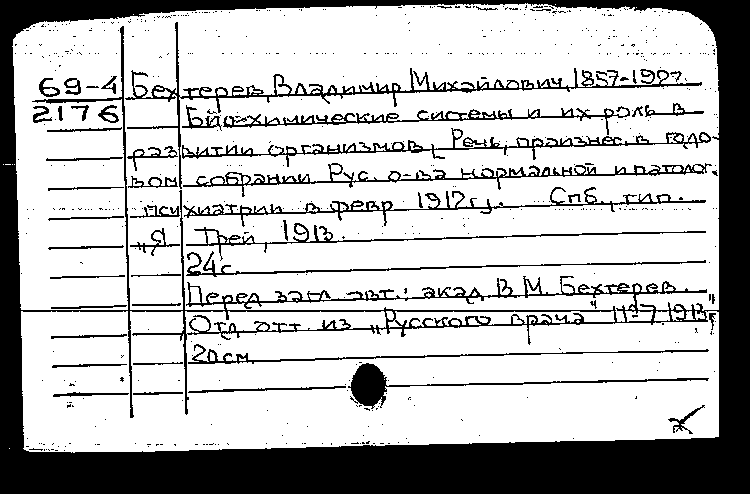 69-4 Бехтерев, Владимир Михайлович, 1857-1927.
2176 Биохимические системы и их роль в
развитии организмов. [Речь, произнес. в годо-
вом собрании Рус. о-ва нормальной и патолог.
психиатрии в февр 1912г]. Спб., тип.
"Я Трей, 1913.
24с.
Перед загл. авт.: акад. В. М. Бехтерев.
Отд. отт. из „Русского врача" №7 1913г.
20см